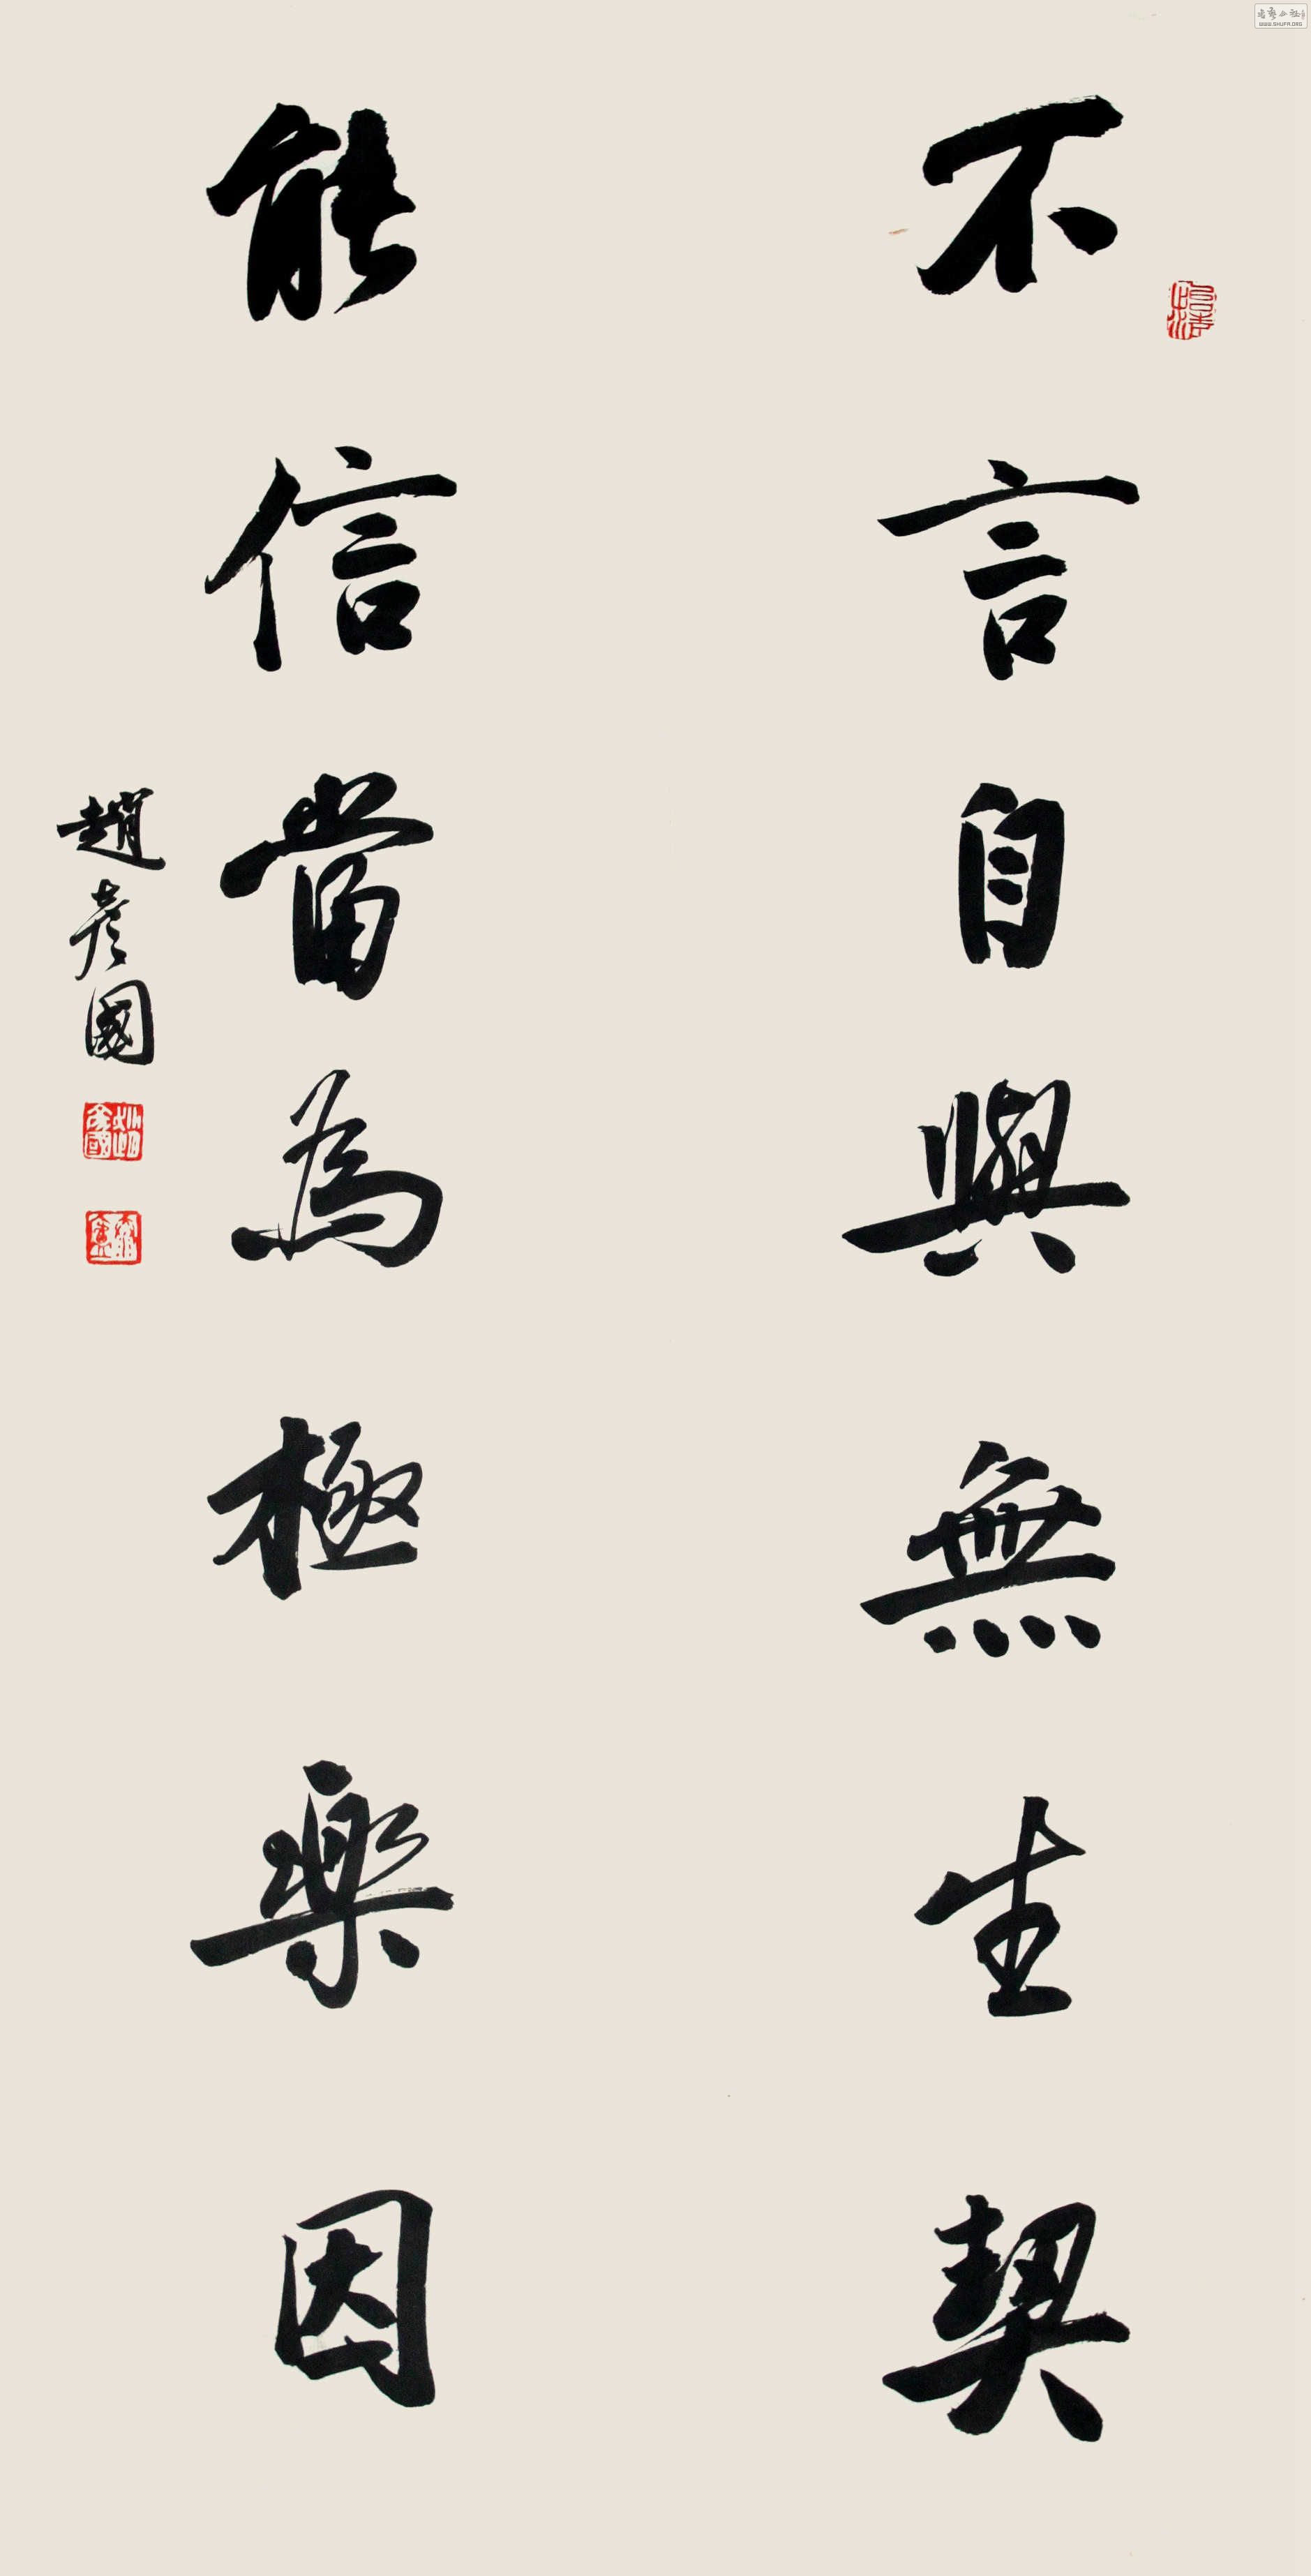 不言自與無生契
能信當為極樂因
趙彥國
WWW.SHUFA.ORG